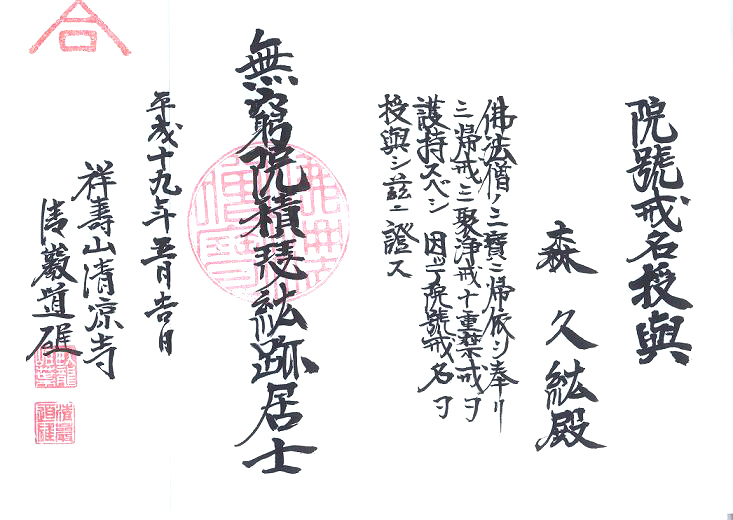 院號戒名授與
森久紘殿
佛法僧ノ三寶ニ帰依シ奉リ
三帰戒三聚浄戒十重禁戒ヲ
護持スベシ 因ッテ院號戒名ヲ
授與シ茲ニ證ス
無窮院積琴紘跡居士
平成十九年五月吉日
祥壽山清凉寺
清巖道雄